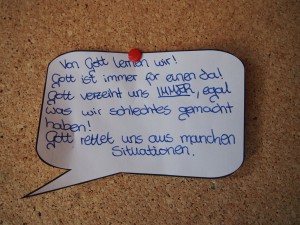 Von Gott lernen wir!
Gott ist immer für einen da!
Gott verzeiht uns IMMER, egal
was wir schlechtes gemacht
haben!
Gott rettet uns aus manchen
Situationen.